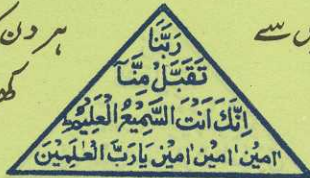 ہر دن
سے
رَبَّنَا
تَقَبَّلْ مِنَّا
اِنَّكَ اَنْتَ السَّمِيْعُ الْعَلِيْمُ
اٰمِيْن اٰمِيْن اٰمِيْن يَارَبَّ الْعٰلَمِيْنَ